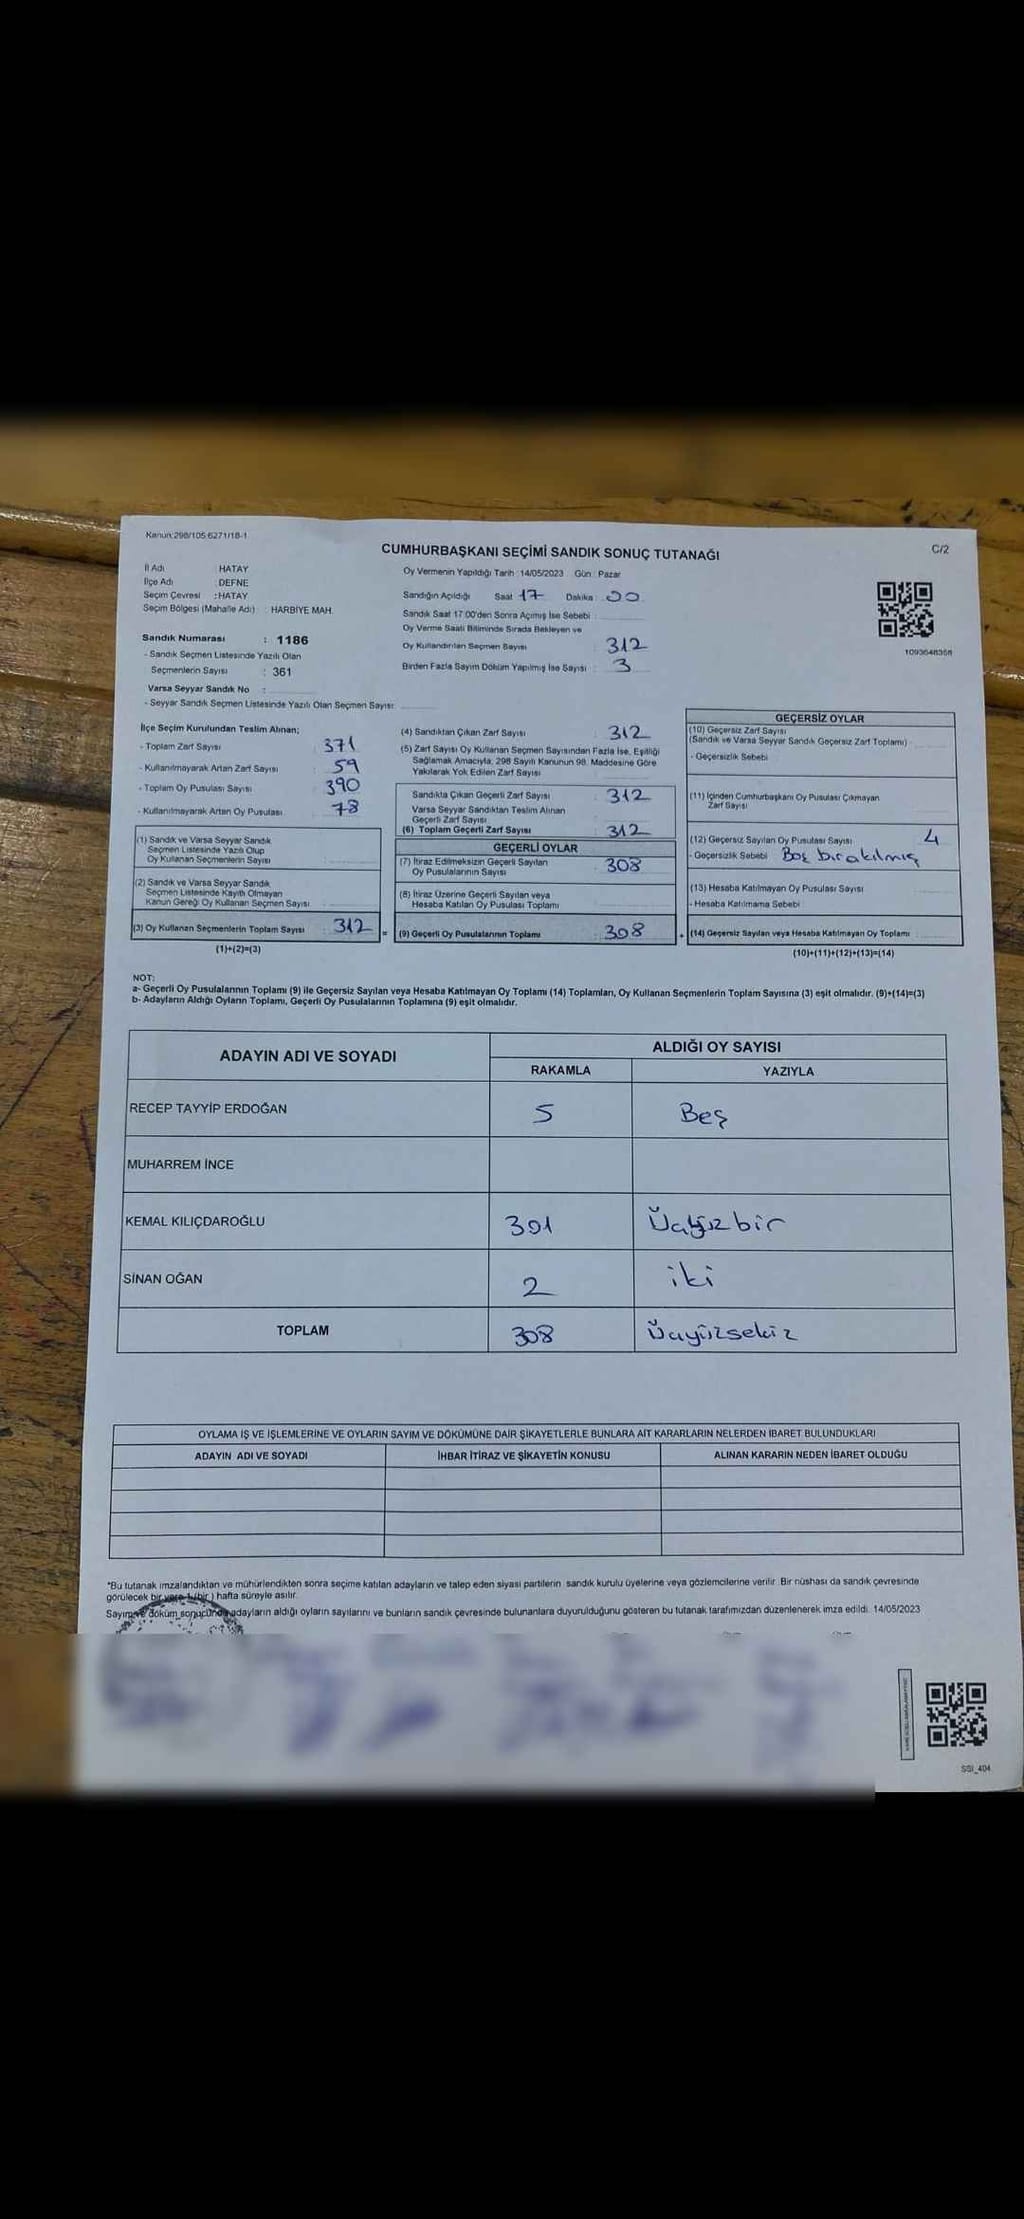 Kanun:298/105,6271/18-1
CUMHURBAŞKANI SEÇİMİ SANDIK SONUÇ TUTANAĞI
C/2
İl Adı : HATAY
İlçe Adı : DEFNE
Seçim Çevresi : HATAY
Seçim Bölgesi (Mahalle Adı) : HARBİYE MAH.
Sandık Numarası : 1186
- Sandık Seçmen Listesinde Yazılı Olan
Seçmenlerin Sayısı : 361
Varsa Seyyar Sandık No :
- Seyyar Sandık Seçmen Listesinde Yazılı Olan Seçmen Sayısı:
Oy Vermenin Yapıldığı Tarih : 14/05/2023 Gün : Pazar
Sandığın Açıldığı Saat 17 Dakika : 00
Sandık Saat 17:00'den Sonra Açılmış İse Sebebi :
Oy Verme Saati Bitiminde Sırada Bekleyen ve
Oy Kullandırılan Seçmen Sayısı : 312
Birden Fazla Sayım Döküm Yapılmış İse Sayısı : 3
1093648358
İlçe Seçim Kurulundan Teslim Alınan;
- Toplam Zarf Sayısı : 371
- Kullanılmayarak Artan Zarf Sayısı : 59
- Toplam Oy Pusulası Sayısı : 390
- Kullanılmayarak Artan Oy Pusulası : 78
(1) Sandık ve Varsa Seyyar Sandık
Seçmen Listesinde Yazılı Olup
Oy Kullanan Seçmenlerin Sayısı :
(2) Sandık ve Varsa Seyyar Sandık
Seçmen Listesinde Kayıtlı Olmayan
Kanun Gereği Oy Kullanan Seçmen Sayısı :
(3) Oy Kullanan Seçmenlerin Toplam Sayısı : 312 =
(1)+(2)=(3)
(4) Sandıktan Çıkan Zarf Sayısı : 312
(5) Zarf Sayısı Oy Kullanan Seçmen Sayısından Fazla İse, Eşitliği
Sağlamak Amacıyla, 298 Sayılı Kanunun 98. Maddesine Göre
Yakılarak Yok Edilen Zarf Sayısı :
Sandıkta Çıkan Geçerli Zarf Sayısı : 312
Varsa Seyyar Sandıktan Teslim Alınan
Geçerli Zarf Sayısı :
(6) Toplam Geçerli Zarf Sayısı : 312
GEÇERLİ OYLAR
(7) İtiraz Edilmeksizin Geçerli Sayılan
Oy Pusulalarının Sayısı : 308
(8) İtiraz Üzerine Geçerli Sayılan veya
Hesaba Katılan Oy Pusulası Toplamı :
(9) Geçerli Oy Pusulalarının Toplamı : 308 +
GEÇERSİZ OYLAR
(10) Geçersiz Zarf Sayısı
(Sandık ve Varsa Seyyar Sandık Geçersiz Zarf Toplamı) :
- Geçersizlik Sebebi
(11) İçinden Cumhurbaşkanı Oy Pusulası Çıkmayan
Zarf Sayısı
(12) Geçersiz Sayılan Oy Pusulası Sayısı 4
- Geçersizlik Sebebi Boş bırakılmış
(13) Hesaba Katılmayan Oy Pusulası Sayısı
- Hesaba Katılmama Sebebi :
(14) Geçersiz Sayılan veya Hesaba Katılmayan Oy Toplamı :
(10)+(11)+(12)+(13)=(14)
NOT:
a- Geçerli Oy Pusulalarının Toplamı (9) ile Geçersiz Sayılan veya Hesaba Katılmayan Oy Toplamı (14) Toplamları, Oy Kullanan Seçmenlerin Toplam Sayısına (3) eşit olmalıdır. (9)+(14)=(3)
b- Adayların Aldığı Oyların Toplamı, Geçerli Oy Pusulalarının Toplamına (9) eşit olmalıdır.
ADAYIN ADI VE SOYADI ALDIĞI OY SAYISI
RAKAMLA YAZIYLA
RECEP TAYYİP ERDOĞAN 5 Beş
MUHARREM İNCE
KEMAL KILIÇDAROĞLU 301 Üçyüzbir
SİNAN OĞAN 2 iki
TOPLAM 308 Üçyüzsekiz
OYLAMA İŞ VE İŞLEMLERİNE VE OYLARIN SAYIM VE DÖKÜMÜNE DAİR ŞİKAYETLERLE BUNLARA AİT KARARLARIN NELERDEN İBARET BULUNDUKLARI
ADAYIN ADI VE SOYADI İHBAR İTİRAZ VE ŞİKAYETİN KONUSU ALINAN KARARIN NEDEN İBARET OLDUĞU
*Bu tutanak imzalandıktan ve mühürlendikten sonra seçime katılan adayların ve talep eden siyasi partilerin sandık kurulu üyelerine veya gözlemcilerine verilir. Bir nüshası da sandık çevresinde
görülecek bir yere 1 (bir) hafta süreyle asılır.
Sayım ve döküm sonucunda adayların aldığı oyların sayılarını ve bunların sandık çevresinde bulunanlara duyurulduğunu gösteren bu tutanak tarafımızdan düzenlenerek imza edildi. 14/05/2023
SSI_404